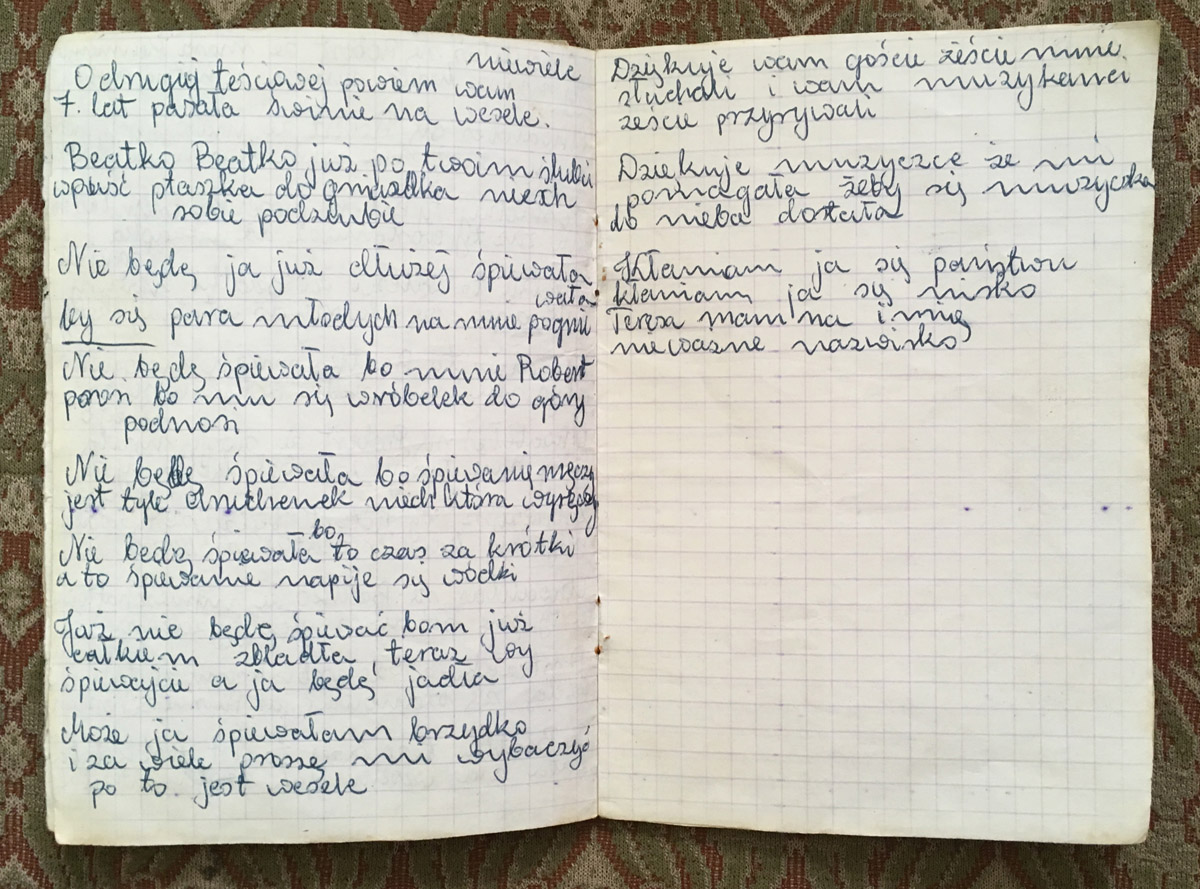 niewiele
O drugiej teściowej powiem wam
7. lat pasała świnie na wesele.
Beatko Beatko już po twoim ślubie
wpuść ptaszka do gniazdka niech
sobie podziubie
Nie będę ja już dłużej śpiewała
wała
by się para młodych na mnie pognie
Nie będę śpiewała bo mnie Robert
prosi bo mu się wróbelek do góry
podnosi
Nie będę śpiewała bo śpiewanie męczy
jest tyle druchenek niech która wyręczy
bo
Nie będę śpiewała to czas za krótki
a to śpiewanie napije się wódki
Już nie będę śpiewać bom już
całkiem zbladła, teraz wy
śpiewajcie a ja będę jadła
Może ja śpiewałam brzydko
i za wiele proszę mi wybaczyć
po to jest wesele
Dziękuję wam goście żeście mnie
słuchali i wam muzykanci
żeście przyrywali
Dziekuję muzyczce że mi
pomagała żeby się muzyczka
do nieba dostała
Kłaniam ja się państwu
kłaniam ja się nisko
Teresa mam na imię
nieważne nazwisko